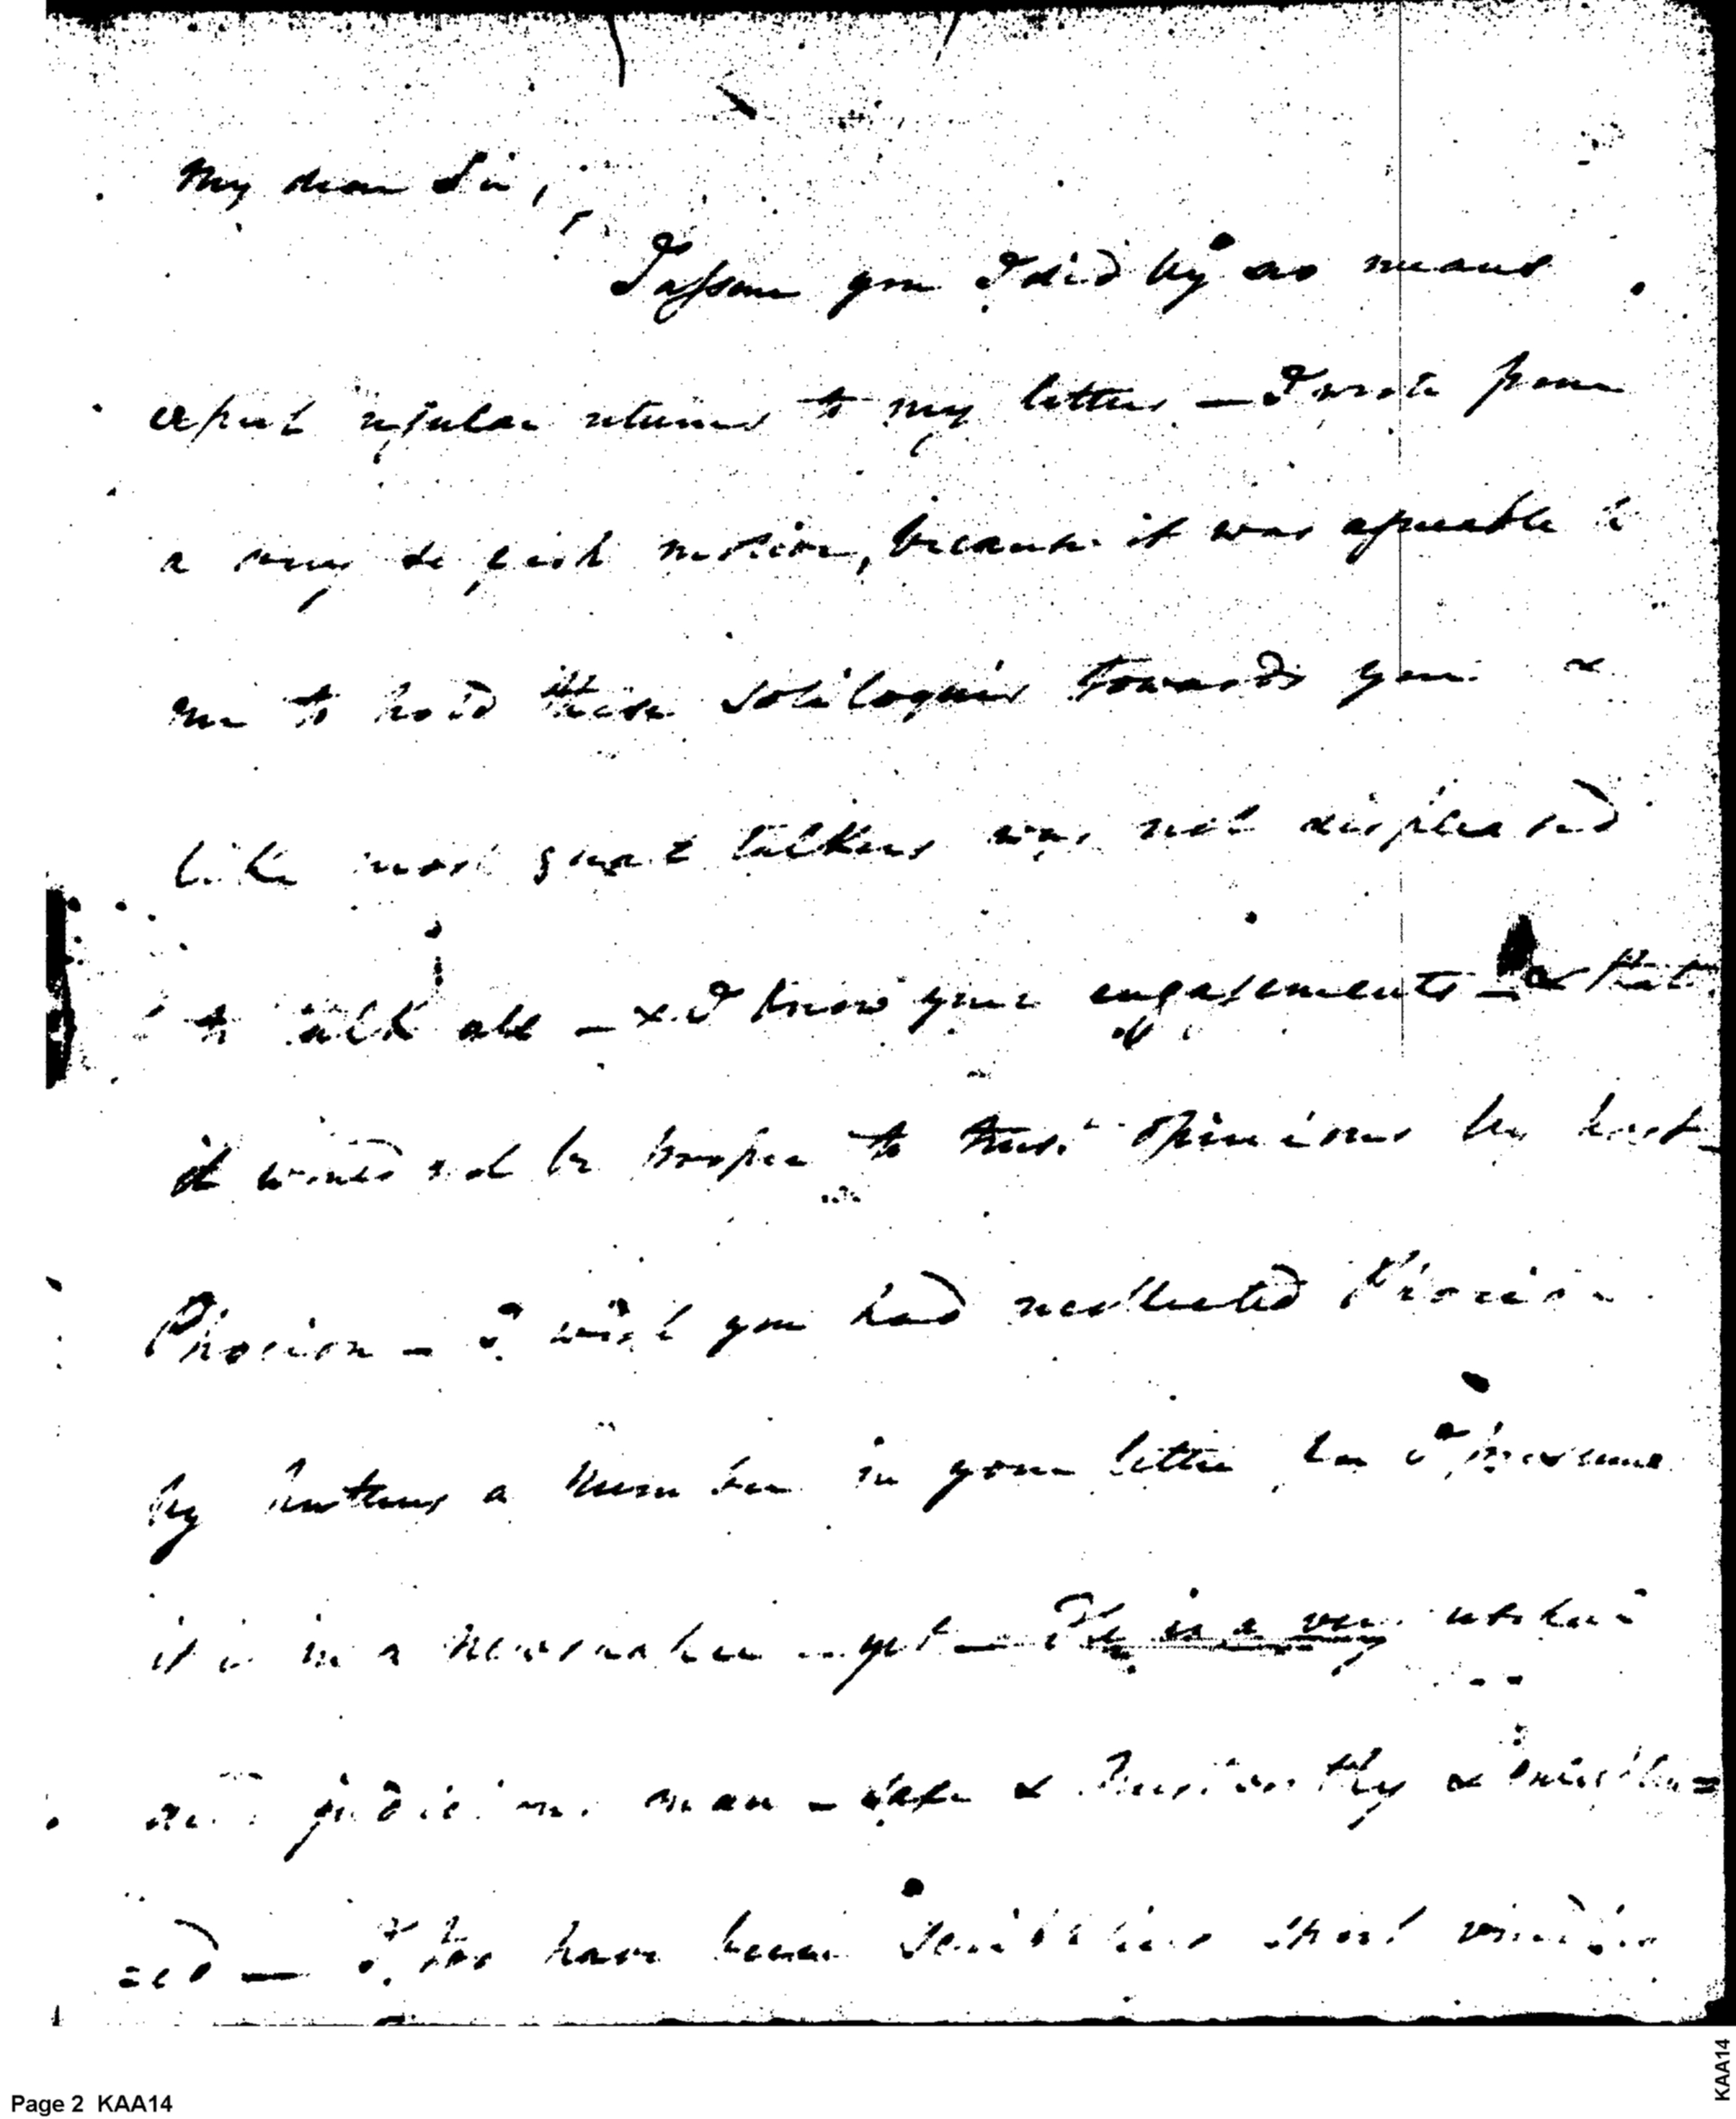 My dear Sir,
I assure you I did by no means
expect regular returns to my letters — I wrote from
a very selfish motive, because it was agreeable to
me to hold these soliloquies towards you &
like most great talkers was not displeased
to talk all — & I know your engagements — & that
it would not be proper to trust opinions by post —
Phocion — I wish you had neglected Phocion
by putting a number in your letter, for I presume
it is in a newspaper yet — He is a very
judicious man — safe & trustworthy &
=ed — I too have been scribbling
Page 2 KAA14
KAA14